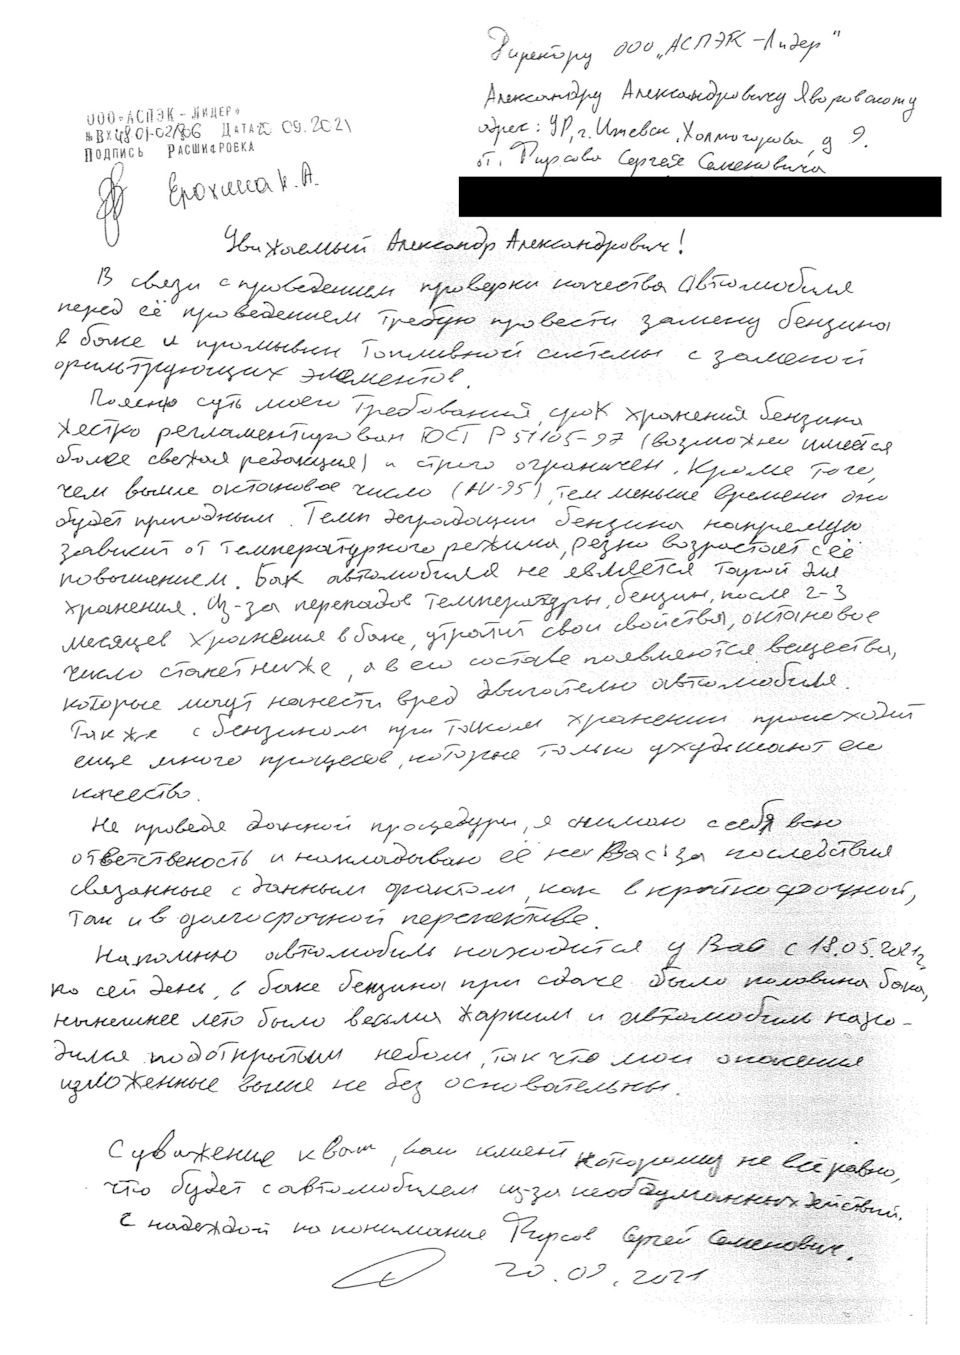 Директору ООО „АСПЭК-Лидер"
Александру Александровичу Яворовскому
адрес: УР, г. Ижевск, Холмогорова, д 9.
от. Фирсова Сергея Семеновича
ООО «АСПЭК - ЛИДЕР»
№ ВХ 4801-02/866 ДАТА 20 09.2021
ПОДПИСЬ РАСШИФРОВКА
Ерохина К. А.
Уважаемый Александр Александрович!
В связи с проведением проверки качества автомобиля
перед её проведением требую провести замену бензина
в баке и промывки топливной системы с заменой
фильтрующих элементов.
Поясню суть моего требования, срок хранения бензина
жестко регламентирован ГОСТ Р 51105-97 (возможно имеется
более свежая редакция) и строго ограничен. Кроме того,
чем выше октановое число (АИ-95), тем меньше времени оно
будет пригодным. Темп деградации бензина напрямую
зависит от температурного режима, резко возрастает с её
повышением. Бак автомобиля не является тарой для
хранения. Из-за перепадов температуры, бензин, после 2-3
месяцев хранения в баке, утратит свои свойства, октановое
число станет ниже, а в его составе появляются вещества,
которые могут нанести вред двигателю автомобиля.
Так же с бензином при таком хранении происходит
еще много процесов, которые только ухудшают его
качество.
Не проведя данной процедуры, я снимаю с себя всю
ответственость и накладываю её на Вас за последствия
связанные с данным фактом, как в краткосрочной,
так и в долгосрочной перспективе.
Напомню автомобиль находится у Вас с 18.05.2021г.
по сей день, в баке бензина при сдаче было половина бака,
нынешнее лето было весьма жарким и автомобиль нахо-
дился под открытым небом, так что мои опасения
изложенные выше не без основательны.
С уважение к вам, ваш клиент которому не всё равно,
что будет с автомобилем из-за необдуманных действий.
С надеждой на понимание Фирсов Сергей Семенович.
20.09.2021